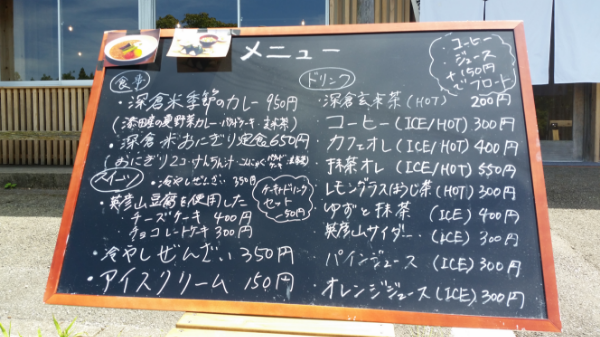 メニュー
食事
・深倉米季節のカレー 950円
(添田産の夏野菜カレー・パウンドケーキ・抹茶)
・深倉米おにぎり定食650円
(おにぎり2コ・
スイーツ
・冷やしぜんざい 350円
・英彦山豆腐を使用した
チーズケーキ 400円
チョコレートケーキ 300円
ケーキ+ドリンク
セット
-50円
・冷やしぜんざい 350円
・アイスクリーム 150円
ドリンク
・コーヒー
・ジュース
+150円
でフロート
・深倉玄米茶 (HOT) 200円
・コーヒー (ICE/HOT) 300円
・カフェオレ (ICE/HOT) 400円
・抹茶オレ (ICE/HOT) 550円
・レモングラスほうじ茶(HOT) 300円
・ゆずと抹茶 (ICE) 400円
・英彦山サイダー (ICE) 300円
・パインジュース (ICE) 300円
・オレンジジュース (ICE) 300円